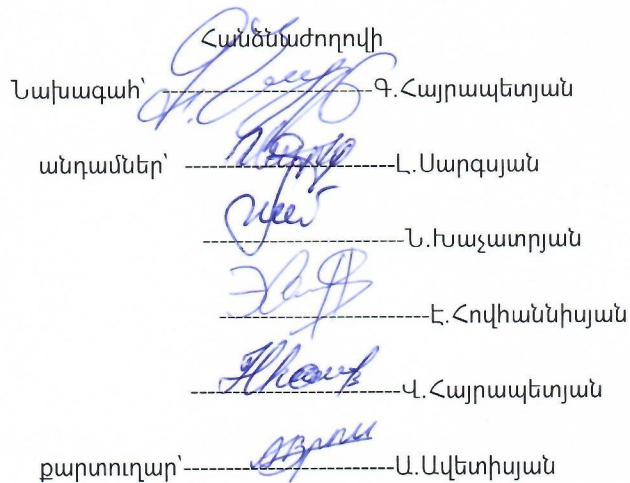 Հանձնաժողովի
Նախագահ՝ ----------------------Գ.Հայրապետյան
անդամներ՝ ----------------------Լ.Սարգսյան
----------------------Ն.Խաչատրյան
----------------------Է.Հովհաննիսյան
----------------------Վ.Հայրապետյան
քարտուղար՝----------------------Ա.Ավետիսյան